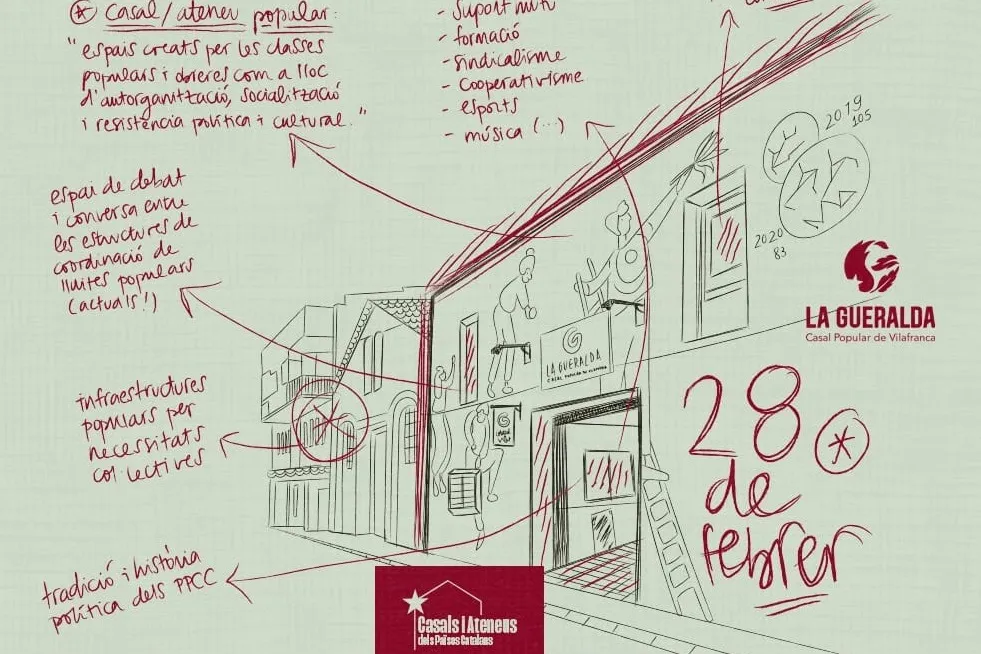 casal/ateneu popular:
"espais creats per les classes
populars i obreres com a lloc
d'autorganització, socialització
i resistència política i cultural."
- suport mutu
- formació
- sindicalisme
- cooperativisme
- esports
- música (...)
espai de debat
i conversa entre
les estructures de
coordinació de
lluites populars
(actuals!)
infraestructures
populars per
necessitats
col·lectives
tradició i història
política dels PPCC
2019
105
2020
83
LA GUERALDA
Casal Popular de Vilafranca
LA GUERALDA
CASAL POPULAR DE VILAFRANCA
28
de
febrer
Casals i Ateneus
dels Països Catalans